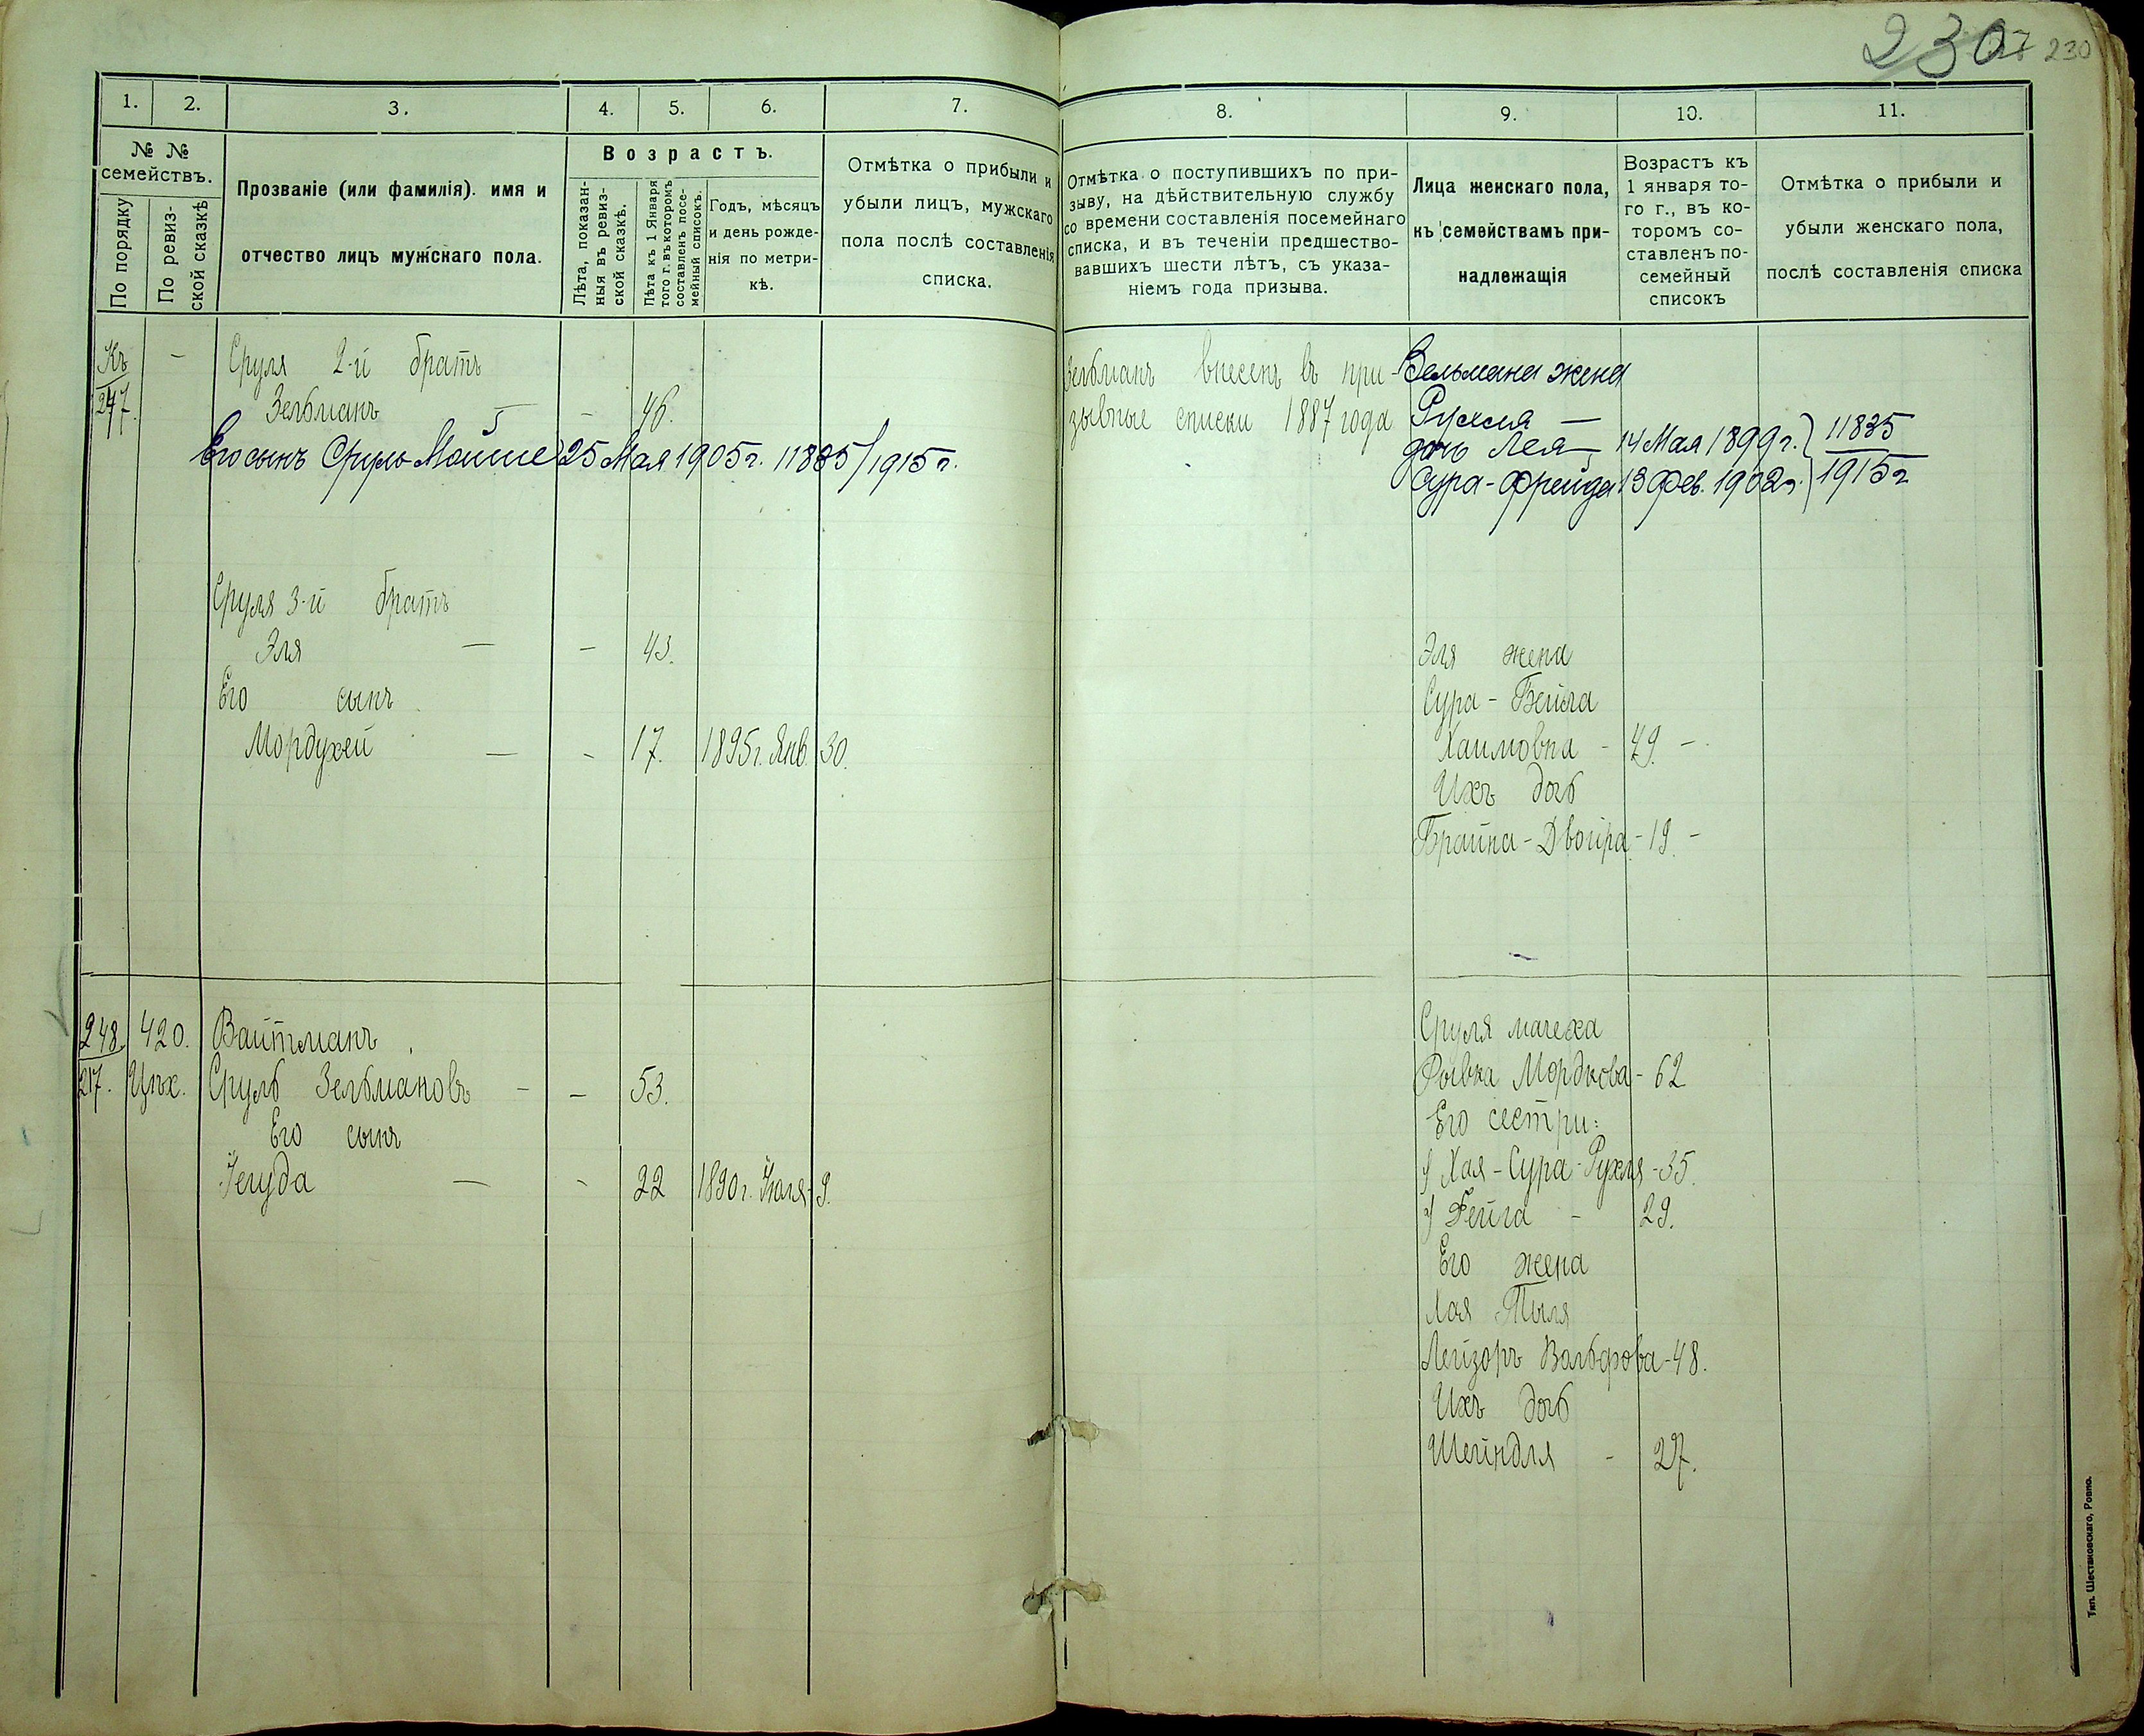 230 27 230
1. 2. 3. 4. 5. 6. 7. 8. 9. 10. 11.
№ №
семействъ.
По порядку
По ревиз-
ской сказкѣ
Прозваніе (или фамилія). имя и
отчество лицъ мужскаго пола.
Возрастъ.
Лѣта, показан-
ныя въ ревиз-
ской сказкѣ.
Лѣта къ 1 Января
того г. въ которомъ
составленъ посе-
мейный списокъ.
Годъ, мѣсяцъ
и день рожде-
нія по метри-
кѣ.
Отмѣтка о прибыли и
убыли лицъ, мужскаго
пола послѣ составленія
списка.
Отмѣтка о поступившихъ по при-
зыву, на дѣйствительную службу
со времени составленія посемейнаго
списка, и въ теченіи предшество-
вавшихъ шести лѣтъ, съ указа-
ніемъ года призыва.
Лица женскаго пола,
къ семействамъ при-
надлежащія
Возрастъ къ
1 января то-
го г., въ ко-
торомъ со-
ставленъ по-
семейный
списокъ
Отмѣтка о прибыли и
убыли женскаго пола,
послѣ составленія списка
Къ — Сруля 2-й братъ
247. Зельманъ — - 46.
Его сынъ Сруль Мойше 25 Мая 1905 г. 11835/1915 г.
Сруля 3-й братъ
Эля — - 43.
Его сынъ
Мордухей — - 17. 1895 г. Янв. 30.
Зельманъ внесенъ въ при-
зывные списки 1887 года
Зельмана жена
Рухля —
дочь Лея — 14 Мая 1899 г. } 11835
Сура-Фрейда 13 Фев. 1902 г. } 1915 г
Эля жена
Сура-Бейла
Хаимовна - 49. -
Ихъ дочь
Брайна-Двойра - 19. -
248. 420. Вайтманъ
217. Цих. Сруль Зельмановъ - - 53.
Его сынъ
Іегуда — - 22 1890 г. Іюля 9.
Сруля мачеха
Рывка Мордкова - 62
Его сестри:
1) Хая-Сура-Рухля - 35.
2) Фейга - 29.
Его жена
Хая-Тыля
Лейзоръ Вольфова - 48.
Ихъ дочь
Шейндля - 27.
Тип. Шестаковскаго, Ровно.